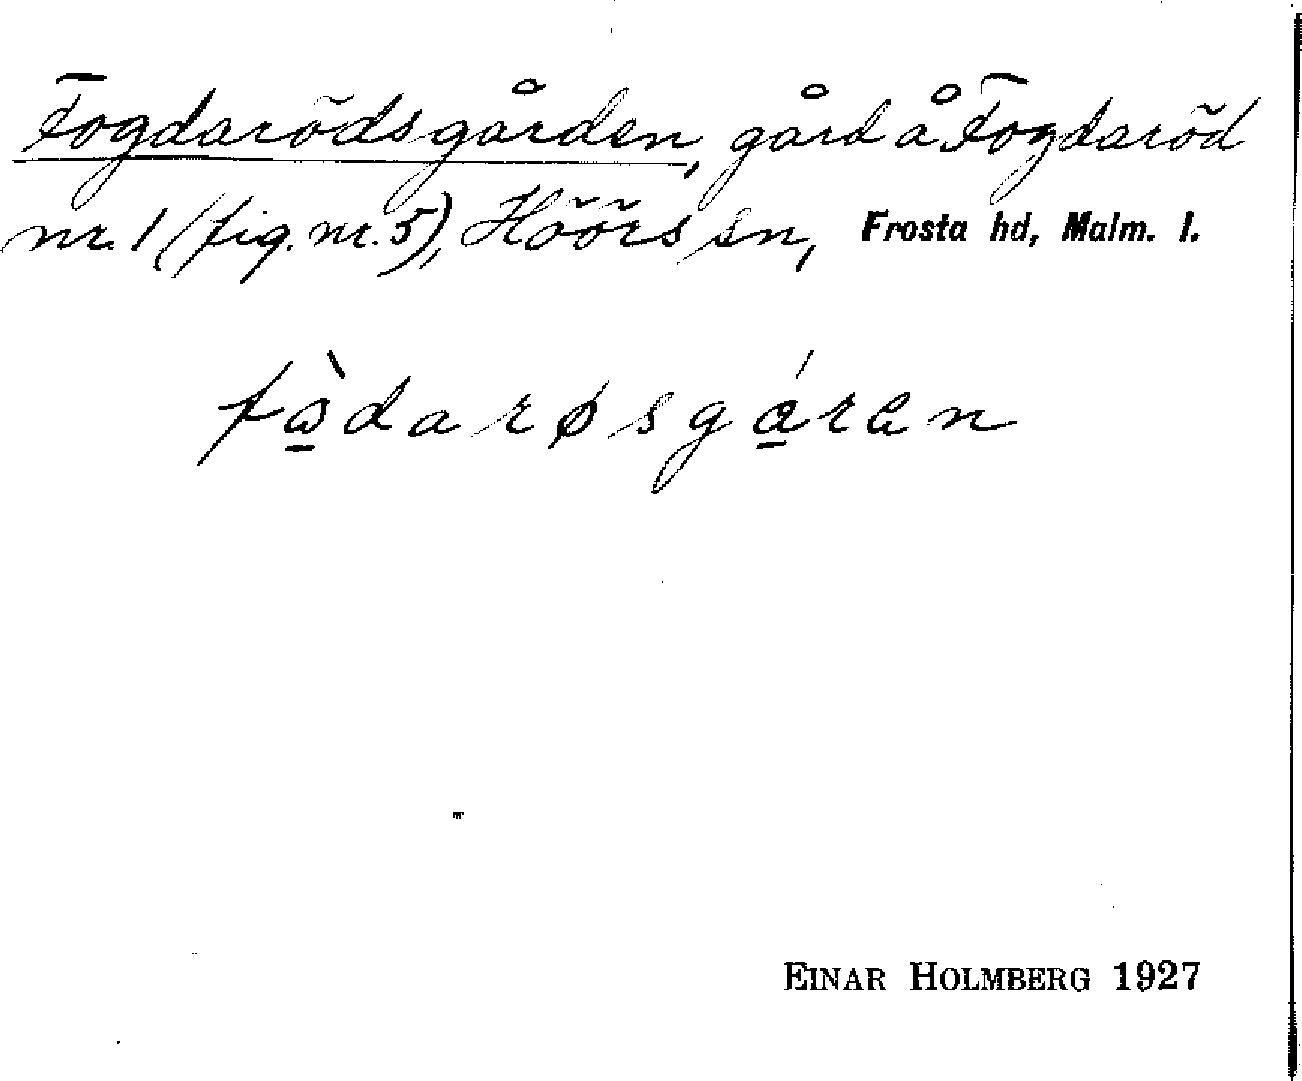 Fogdarödsgården, gård å Fogdaröd
nr. 1 (fig. nr. 5), Höörs sn, Frosta hd, Malm. l.
fàdarøsgáren
EINAR HOLMBERG 1927